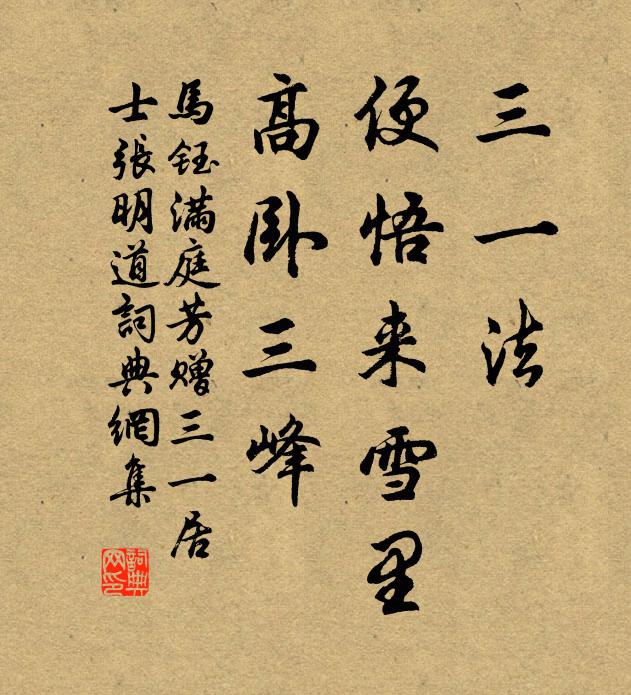 三一法
便悟来雪里
高卧三峰
馬鈺滿庭芳赠三一居
士張明道詞典網集
詞典网印